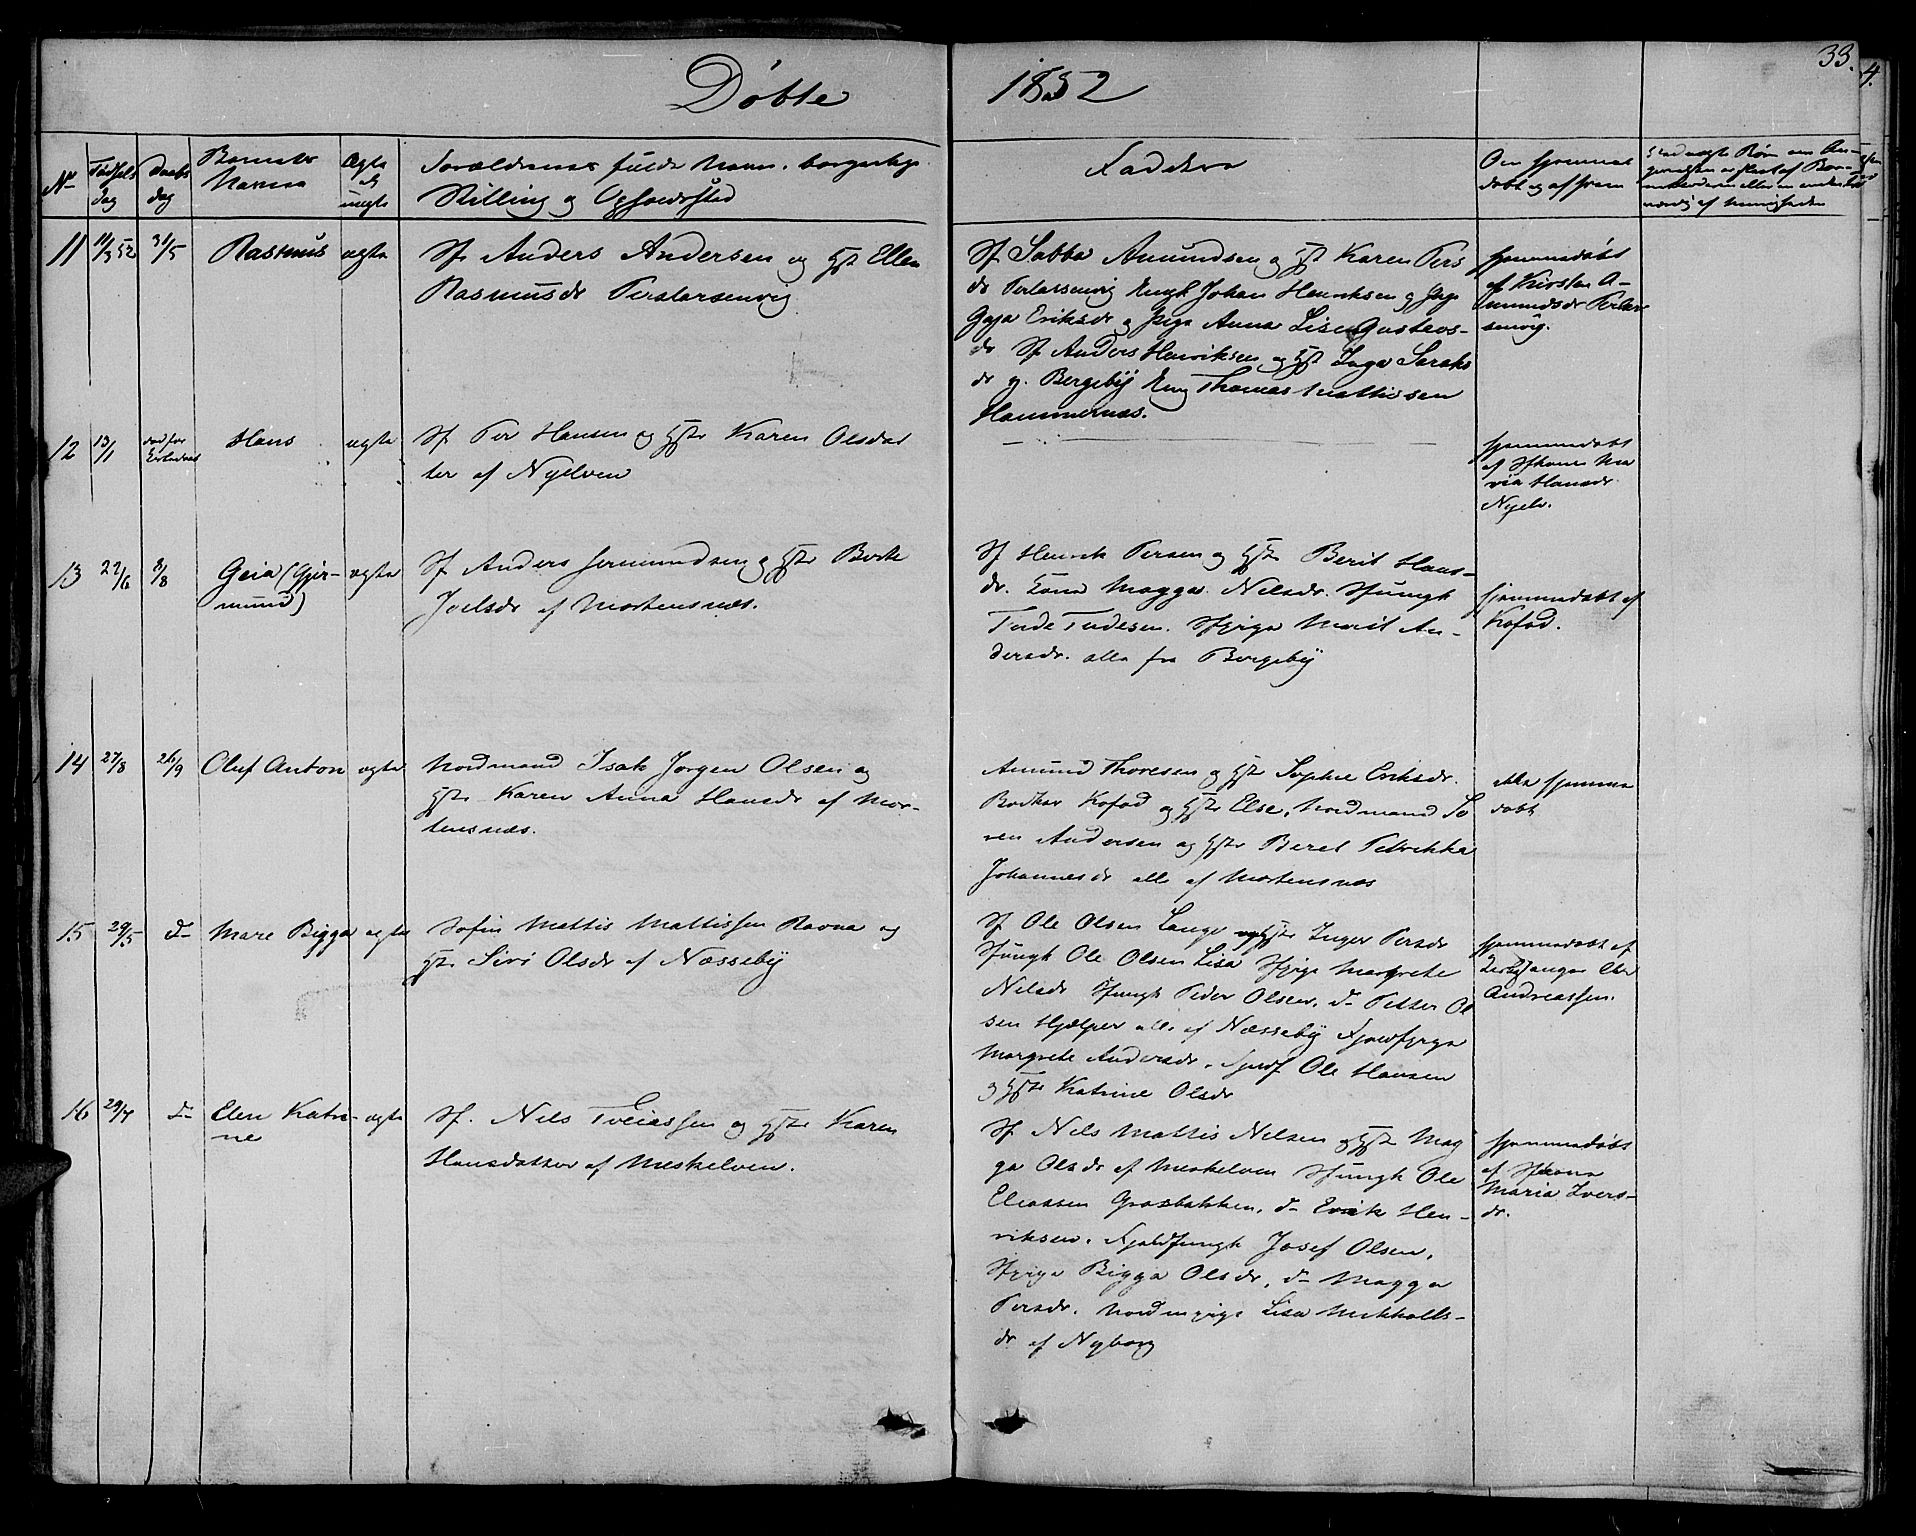 Døbte
1852
33.
4.
No
Fødsels
dag
Daabs
dag
Barnets
Navn
Ægte
el
uægte
Forældrenes fulde Navn, borgerlige
Stilling og Opholdssted
Faddere
Om hjemme
døbt og af hvem
11 11/3 52 31/5 Rasmus ægte
Sf Anders Andersen og Hst Ellen
Rasmusdr Perslarsenvig
Sf Sabba Amundsen og Hst Karen Pers
dr Perlarsenvig Ungk Johan Henriksen og Pige
Gaja Eriksdr og pige Anna Lise Gustavs-
dr Sf Anders Henriksen og Hst Inga Sarah
dr af Bergeby Ung Thomas Mathisen
Hammernæs.
hjemmedøbt
af Kirsten A-
mundsdr Perlar
senvig.
12 13/1 død før Hans ægte
Sf Per Hansen og Hstr Karen Olsdat
ter af Nyelven
hjemmedøbt
af Sfkone Ma
ria Hansdr
Nyelv.
13 27/6 8/8 Geia (Gjer-
mund) ægte
Sf Anders Jermundsen og Hstr Berte
Joelsdr af Mortensnæs.
Sf Henrik Persen og Hstr Berit Hans-
dr. Kona Magga Nilsdr. Sfungk
Tude Tudesen. Sfpige Marit An-
dersdr. alle fra Bergeby
hjemmedøbt af
Kofod.
14 27/8 26/9 Oluf Anton ægte
Nordmand Isak Jørgen Olsen og
Hstr Karen Anna Hansdr af Mor-
tensnæs.
Amund Thoresen og Hstr Sophie Eriksdr.
Bødker Kofod og Hstr Else, Nordmand Sø
ren Andersen og Hstr Beret Petrikka
Johannesdr alle af Mortensnæs
ikke hjemme
døbt
15 29/5 d- Mare Bigga ægte
Sofin Mattis Mattissen Ravna og
Hstr Siri Olsdr af Næsseby
Sf Ole Olsen Lange og Hstr Inger Persdr
Sfungk Ole Olsen Lisa Sfpige Margrete
Nilsdr Sfungk Peder Olsen, d- Petter Ol
sen Hjelper alle af Næsseby Fjeldfpige
Margrete Andersdr. Fjeldf Ole Hansen
og Hstr Katrine Olsdr
hjemmedøbt af
Kirkesanger Ole
Andreassen.
16 29/7 d- Elen Katri-
ne ægte
Sf. Nils Tveiassen og Hstr Karen
Hansdatter af Meskelven.
Sf Nils Mattis Nilsen og Hstr Mag
ga Olsdr af Meskelven Sfungk Ole
Eliassen Grasbakken, d- Erik Hen-
riksen. Fjeldfungk Josef Olsen,
Sfpige Bigga Olsdr, d- Magga
Persdr. Nordmpige Lisa Mikkels-
dr af Nyborg
hjemmedøbt
af Sfkone
Maria Ivers-
dr.